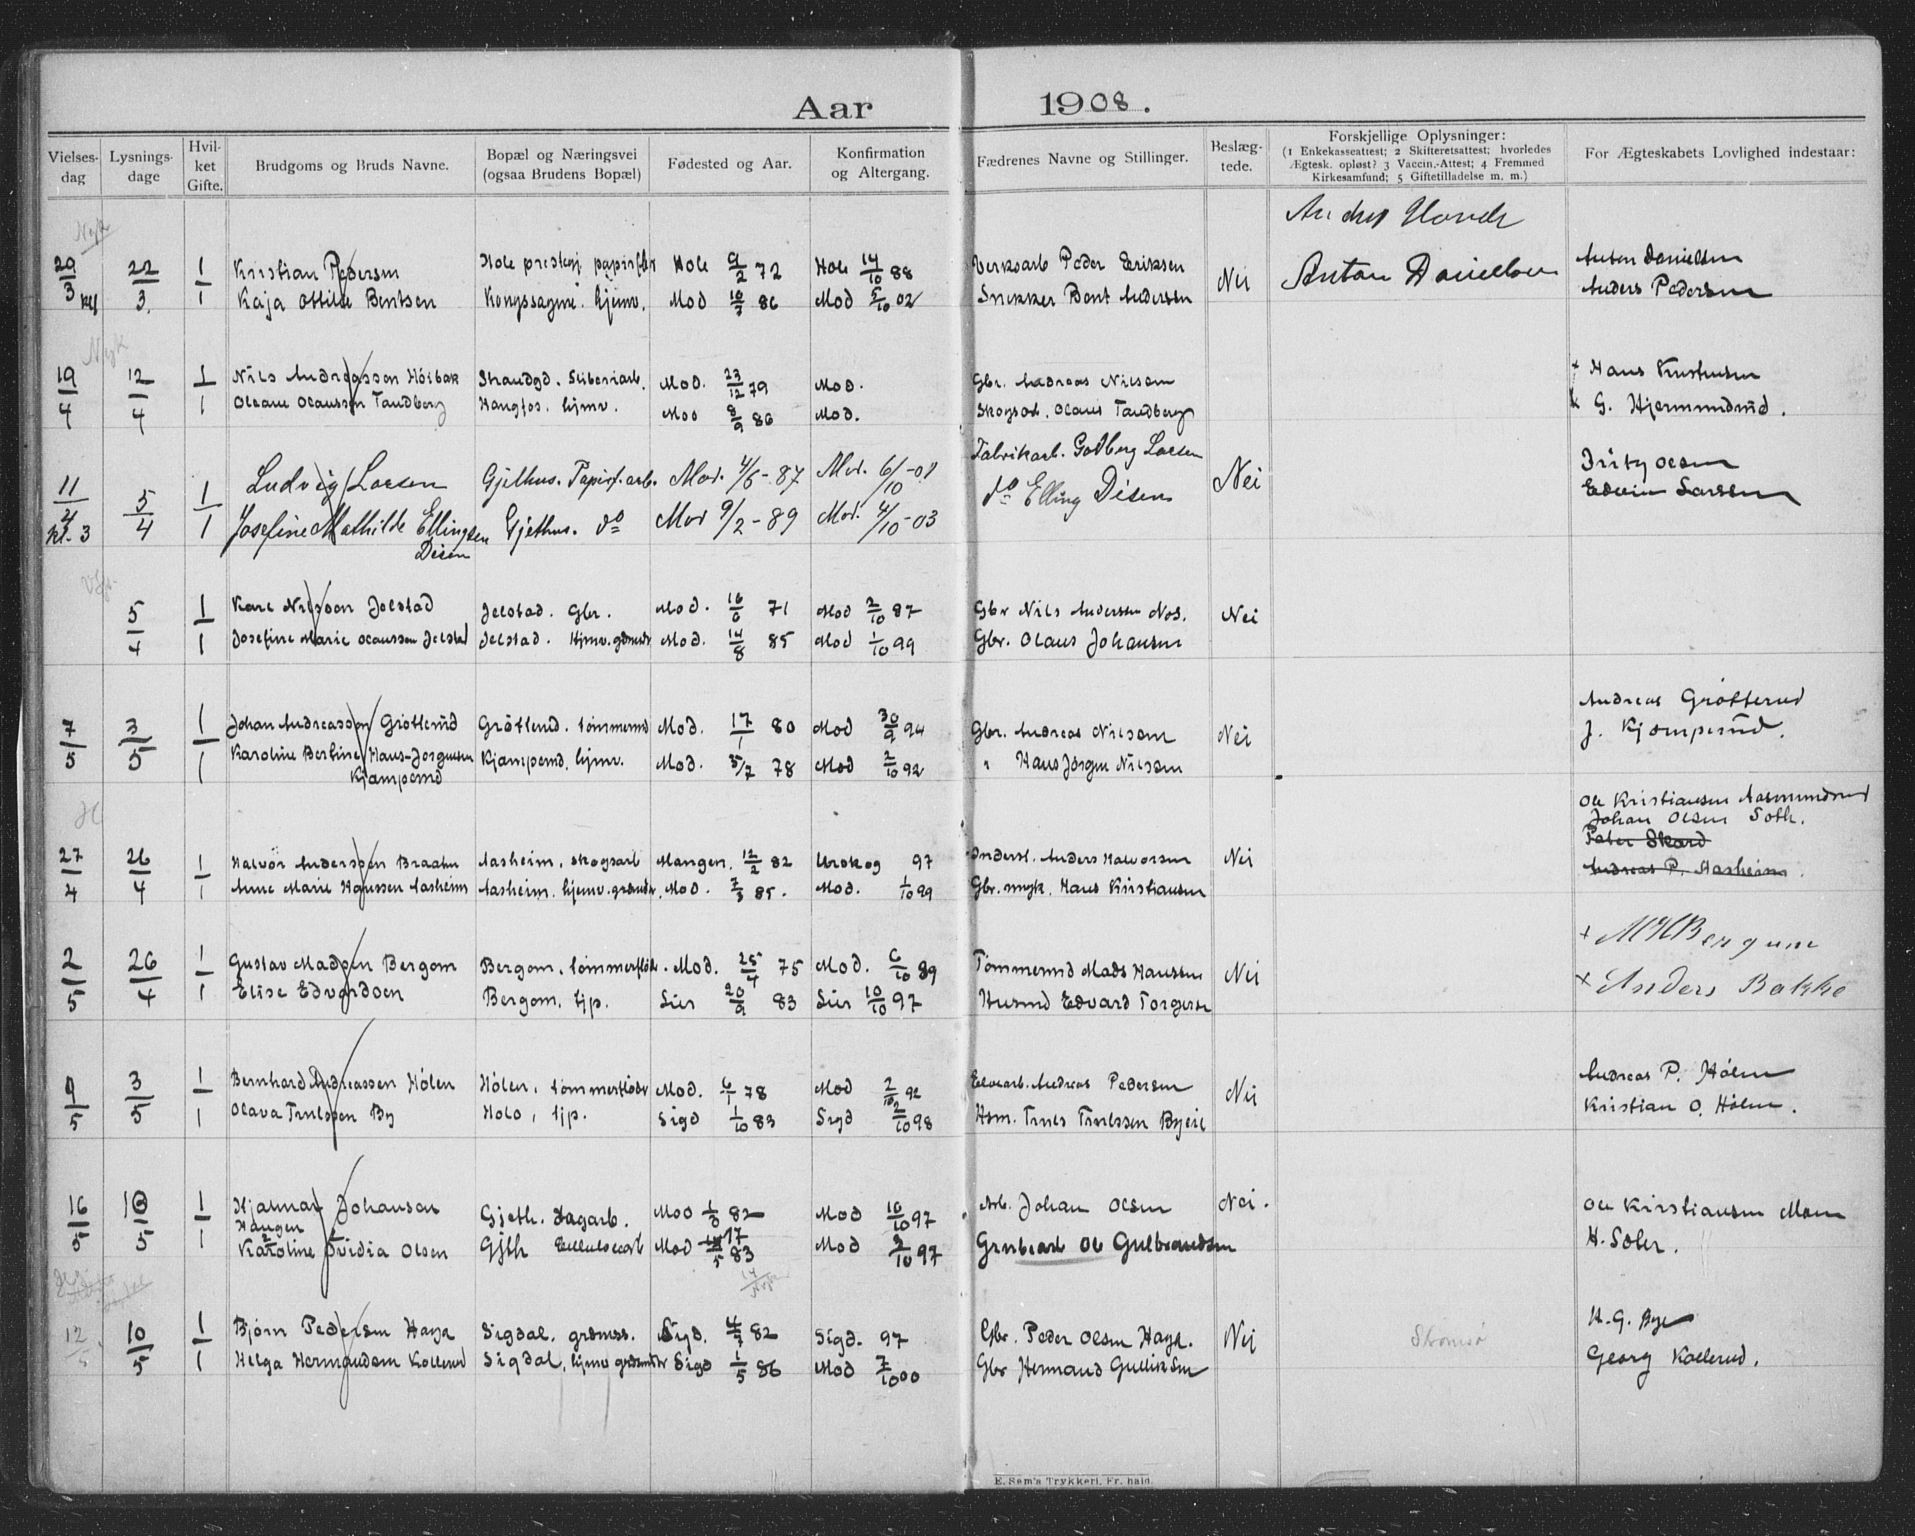 Aar 1908.
Vielses-dag Lysnings-dage Hvil-ket Gifte. Brudgoms og Bruds Navne. Bopæl og Næringsvei (ogsaa Brudens Bopæl) Fødested og Aar. Konfirmation og Altergang. Fædrenes Navne og Stillinger. Beslæg-tede. Forskjellige Oplysninger: For Ægteskabets Lovlighed indestaar:
(1 Enkekasseattest; 2 Skifteretsattest; hvorledes
Ægtesk. opløst? 3 Vaccin.-Attest; 4 Fremmed
Kirkesamfund; 5 Giftetilladelse m. m.)
29/3 22/3. 1 Kristian Pedersen Hole 9/2 72 Hole 14/10 88 Verksarb Peder Eriksen Nei Anton Danielsen Anton Danielsen
1 Kaja Ottilde Bentsen Kongssagene. hjemv. Mod 10/3 86 Mod 5/10 02 Snekker Bent Andersen Anders Pedersen
19/4 12/4 1 Nils Andreassen Høibak Mod. 23/12 79 Mod. Gbr. Andreas Nilsen Hans Kristiansen
1 Oleane Olaussen Tandberg hjmv. Mod 8/9 86 Mod. Skogsarb. Olaus Tandberg G. Hjermundrud.
11/4 kl. 3 5/4 1 Ludvig Larsen Gjethus. Papirf. arb. Mod. 4/6-87 Mod. 6/10-01 Fabrikarb. Godberg Larsen Nei Fritz Olsen
1 Josefine Mathilde Ellingsen Gjethus. do Mod 9/2-89 Mod. 4/10-03 do Elling Disen Edvin Larsen
Disen
5/4 1 Karl Nilsson Jelstad Jelstad. Gbr. Mod. 16/6 71 Mod 2/10 87 Gbr Nils Andersen Nos. Nei
1 Josefine Marie Olaussen Jelstad Jelstad. Hjmv. grdmdtr Mod. 14/8 85 Mod 1/10 99 Gbr. Olaus Johansen
7/5 3/5 1 Johan Andreassen Grøtterud Grøtterud. tømmermd Mod. 17/1 80 Mod 30/9 94 Gbr. Andreas Nilsen Nei Andreas Grøtterud
1 Karoline Bertine Hans-Jørgensen Kjømperud. hjmv. Mod. 5/7 78 Mod 2/10 92 " Hans Jørgen Nilsen J. Kjømperud.
Kjømperud
Ole Kristiansen Aasmundrud
Johan Olsen Soth.
Peter Skard
27/4 26/4 1 Halvor Anderssen Braaten Aasheim. skogsarb Mangen. 12/2 82 97 Inderst. Anders Halvorsen Nei Andreas P. Aasheim.
1 Anne Marie Hanssen Aasheim Aasheim. hjemv. grdmdtr. Mod. 7/3 85. Mod. 1/10 99 Gbr. myk. Hans Kristiansen
2/5 26/4 1 Gustav Madsen Bergom Bergom. tømmerfløder. Mod. 25/4 75 Mod. 6/10 89 Tømmermd Mads Hanssen Nei M H Bergum
1 Elise Edvardsen Bergom. tjp. Lier 20/9 83 Lier 10/10 97 Husmd Edvard Torgersen Anders Bakke
9/5 3/5 1 Bernhard Andreassen Hølen Hølen. tømmerfløder Mod. 6/1 78 Mod 2/10 92 Elvearb. Andreas Pedersen Nei Andreas P. Hølen
1 Olava Trulssen By Holo, tjp. Sigd 1/10 83 Sigd 2/10 98 Hsm. Truls Trulssen Byeie Kristian O. Hølen.
16/5 10/5 1 Hjalmar Johansen Gjeth. Dagarb. Mod 1/8 82 Mod 10/10 97 Arb. Johan Olsen Nei. Ole Kristiansen Moen
Haugen
1 Karoline Olsen Gjth Cellulosearb Mod 17/5 83 Mod 3/10 97 Grubearb Ole Gulbrandsen H. Soler.
12/5 10/5 1 Bjørn Pedersen Haga Sigdal. grdmss. Sigd. 4/3 82 Sigd. 97 Gbr. Peder Olsen Haga. Nei Strømsø H. G. Bye
1 Helga Hermandsen Kollerud Sigdal, hjmv grdmdtr Sigd 1/5 86 Mod 7/10 00 Gbr Hermand Gulliksen Georg Kollerud.
E. Sem's Trykkeri, Fr. hald.